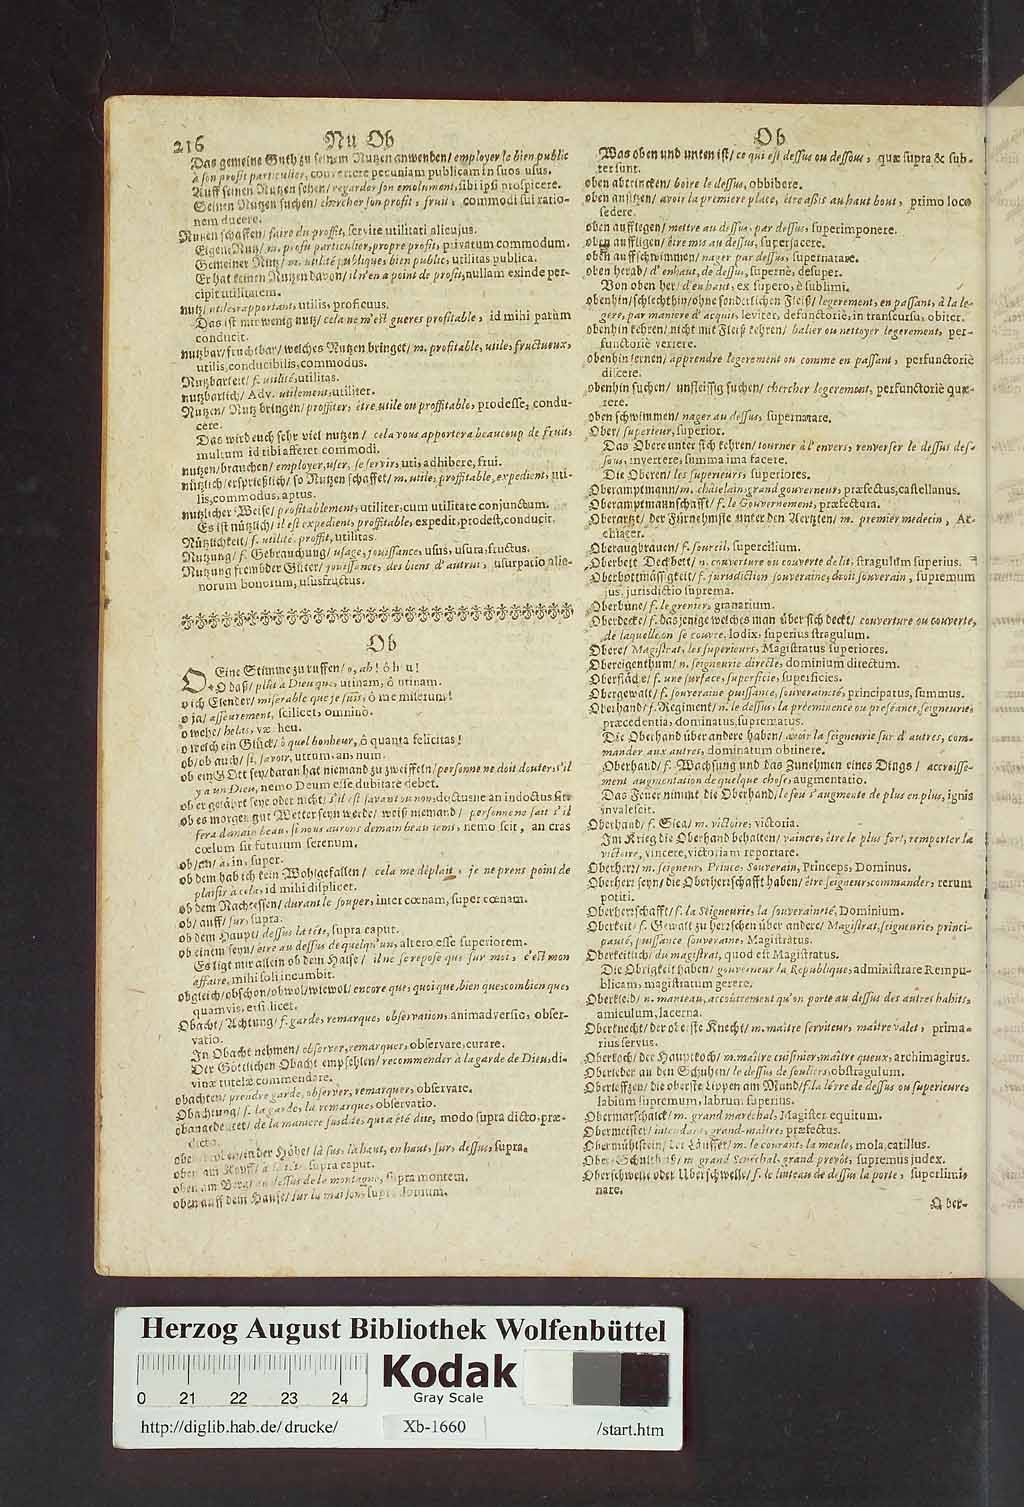 216 Nu Ob
Das gemeine Guth zu seinem Nutzen anwenden/ employer le bien public
à son profit particulier, convertere pecuniam publicam in suos usus.
Auff seinen Nutzen sehen/ regarder son emolument, sibi ipsi prospicere.
Seinen Nutzen suchen/ chercher son profit, fruit, commodi sui ratio-
nem ducere.
Nutzen schaffen/ faire du proffit, servire utilitati alicujus.
Eigene Nutz/ m. profit particulier, propre profit, privatum commodum.
Gemeiner Nutz/ m. utilité publique, bien public, utilitas publica.
Er hat keinen Nutzen davon/ il n'en a point de profit, nullam exinde per-
cipit utilitatem.
nutz/ utile, rapportant, utilis, proficuus.
Das ist mir wenig nutz/ cela ne m'est gueres profitable, id mihi parum
conducit.
nutzbar/ fruchtbar/ welches Nutzen bringet/ m. profitable, utile, fructueux,
utilis, conducibilis, commodus.
Nutzbarkeit/ f. utilité, utilitas.
nutzbarlich/ Adv. utilement, utiliter.
Nutzen/ Nutz bringen/ proffiter, être utile ou proffitable, prodesse, condu-
cere.
Das wird euch sehr viel nutzen/ cela vous apportera beaucoup de fruit,
multum id tibi afferet commodi.
nutzen/ brauchen/ employer, user, se servir, uti, adhibere, frui.
nützlich/ ersprießlich/ so Nutzen schaffet/ m. utile, proffitable, expedient, uti-
lis, commodus, aptus.
nutzlicher Weise/ profitablement, utiliter, cum utilitate conjunctum.
Es ist nützlich/ il est expedient, proffitable, expedit, prodest, conducit.
Nützlichkeit/ f. utilité, proffit, utilitas.
Nutzung/ f. Gebrauchung/ usage, jouissance, usus, usura, fructus.
Nutzung frembder Güter/ jouissance, des biens d'autrui, usurpatio alie-
norum bonorum, ususfructus.
Ob
O Eine Stimme zu ruffen/ o, ah! ô heu!
O daß/ plût à Dieu que, utinam, ô utinam.
o ich Elender/ miserable que je suis, ô me miserum!
o ja/ asseurement, scilicet, omnino.
o wehe/ helas, væ heu.
o welch ein Glück/ ô quel bonheur, ô quanta felicitas!
ob/ ob auch/ si, savoir, utrum, an, num.
ob ein GOtt sey/ daran hat niemand zu zweiffeln/ personne ne doit douter, s'il
y a un Dieu, nemo Deum esse dubitare debet.
ob er gelährt seye oder nicht/ s'il est savant ou non, doctusne an indoctus sit.
ob es morgen gut Wetter seyn werde/ weiß niemand/ personne ne sait s'il
fera demain beau, si nous aurons demain beau tems, nemo scit, an cras
cœlum sit futurum serenum.
ob/ an/ à, in, super.
ob dem hab ich kein Wohlgefallen/ cela me déplait, je ne prens point de
plaisir à cela, id mihi displicet.
ob dem Nachtessen/ durant le souper, inter cœnam, super cœnam.
ob/ auff/ sur, supra.
ob dem Haupt/ dessus la tête, supra caput.
ob einem seyn/ être au dessus de quelqu'un, altero esse superiorem.
Es ligt mir allein ob dem Halse/ il ne se repose que sur moi, c'est mon
affaire, mihi soli incumbit.
obgleich/ obschon/ obwol/ wiewol/ encore que, quoi que, bien que, combien que,
quamvis, etsi, licet.
Obacht/ Achtung/ f. garde, remarque, observation, animadversio, obser-
vatio.
In Obacht nehmen/ observer, remarquer, observare, curare.
Der Göttlichen Obacht empfehlen/ recommender à la garde de Dieu, di-
vinæ tutelæ commendare.
obachten/ prendre garde, observer, remarquer, observare.
Obachtung/ f. la garde, la remarque, observatio.
obangedeutet/ de la maniere susdite, qui a été dite, modo supra dicto, præ-
dicto.
oben/ in der Höhe/ là sus, là haut, en haut, sur, dessus, supra.
oben am Kopff/ à la tête, supra caput.
oben am Berg/ au dessus de la montagne, supra montem.
oben auff dem Hause/ sur la maison, supra domum.
Ob
Was oben und unten ist/ ce qui est dessus ou dessous, quæ supra & sub-
ter sunt.
oben abtrincken/ boire le dessus, obbibere.
oben ansitzen/ avoir la premiere place, être assis au haut bout, primo loco
sedere.
oben aufflegen/ mettre au dessus, par dessus, superimponere.
oben auffligen/ être mis au dessus, superjacere.
oben auffschwimmen/ nager par dessus, supernatare.
oben herab/ d'enhaut, de dessus, supernè, desuper.
Von oben her/ d'en haut, ex supero, è sublimi.
obenhin/ schlechthin/ ohne sonderlichen Fleiß/ legerement, en passant, à la le-
gere, par maniere d'acquit, leviter, defunctoriè, in transcursu, obiter.
obenhin kehren/ nicht mit Fleiß kehren/ balier ou nettoyer legerement, per-
functoriè verrere.
obenhin lernen/ apprendre legerement ou comme en passant, perfunctoriè
discere.
obenhin suchen/ unfleissig suchen/ chercher legerement, perfunctoriè quæ-
rere.
oben schwimmen/ nager au dessus, supernatare.
Ober/ superieur, superior.
Das Obere unter sich kehren/ tourner à l'envers, renverser le dessus des-
sous, invertere, summa ima facere.
Die Oberen/ les superieurs, superiores.
Oberamptmann/ m. châtelain, grand gouverneur, præfectus, castellanus.
Oberamptmannschafft/ f. le Gouvernement, præfectura.
Oberartzt/ der Fürnehmste unter den Aertzten/ m. premier medecin, Ar-
chiater.
Oberaugbrauen/ f. sourcil, supercilium.
Oberbett Deckbett/ n. couverture ou couverte de lit, stragulum superius.
Oberbottmässigkeit/ f. jurisdiction souveraine, droit souverain, supremum
jus, jurisdictio suprema.
Oberbüne/ f. le grenier, granarium.
Oberdecke/ f. dasjenige welches man über sich deckt/ couverture ou couverte,
de laquelle on se couvre, lodix, superius stragulum.
Obere/ Magistrat, les superieurs, Magistratus superiores.
Obereigenthum/ n. seigneurie directe, dominium directum.
Oberfläche/ f. une surface, superficie, superficies.
Obergewalt/ f. souveraine puissance, souveraineté, principatus, summus.
Oberhand/ f. Regiment/ n. le dessus, la prééminence ou preséance, seigneurie,
præcedentia, dominatus, suprematus.
Die Oberhand über andere haben/ avoir la seigneurie sur d'autres, com-
mander aux autres, dominatum obtinere.
Oberhand/ f. Wachsung und das Zunehmen eines Dings/ accroisse-
ment augmentation de quelque chose, augmentatio.
Das Feuer nimmt die Oberhand/ le feu s'augmente de plus en plus, ignis
invalescit.
Oberhand/ f. Sieg/ m. victoire, victoria.
Im Krieg die Oberhand behalten/ vaincre, être le plus fort, remporter la
victoire, vincere, victoriam reportare.
Oberherz/ m. seigneur, Prince, Souverain, Princeps, Dominus.
Oberherr seyn/ die Oberherrschafft haben/ être seigneur, commander, rerum
potiri.
Oberherrschafft/ f. la Seigneurie, la souveraineté, Dominium.
Oberkeit/ f. Gewalt zu herrschen über andere/ Magistrat, seigneurie, princi-
pauté, puissance souveraine, Magistratus.
Oberkeitlich/ du magistrat, quod est Magistratus.
Die Obrigkeit haben/ gouverneur la Republique, administrare Rempu-
blicam, magistratum gerere.
Oberkleid/ n. manteau, accoutrement qu'on porte au dessus des autres habits,
amiculum, lacerna.
Oberknecht/ der oberste Knecht/ m. maître serviteur, maître valet, prima-
rius servus.
Oberkoch/ der Hauptkoch/ m. maître cuisinier, maître queux, archimagirus.
Oberleder an den Schuhen/ le dessus de souliers, obstragulum.
Oberlefftzen/ die oberste Lippen am Mund/ f. la lévre de dessus ou superieure,
labium supremum, labrum superius.
Obermarschalck/ m. grand maréchal, Magister equitum.
Obermeister/ intendant, grand-maître, præfectus.
Obermühlstein/ der Läuffer/ m. le courant, la meule, mola, catillus.
Ober-Schultheiß/ m. grand Senéchal, grand prevôt, supremus judex.
Oberschwelle oder Überschwelle/ f. le linteau de dessus la porte, superlimi-
nare.
Ober-
Herzog August Bibliothek Wolfenbüttel
Kodak
Gray Scale
0 21 22 23 24
http://diglib.hab.de/drucke/ Xb-1660 /start.htm